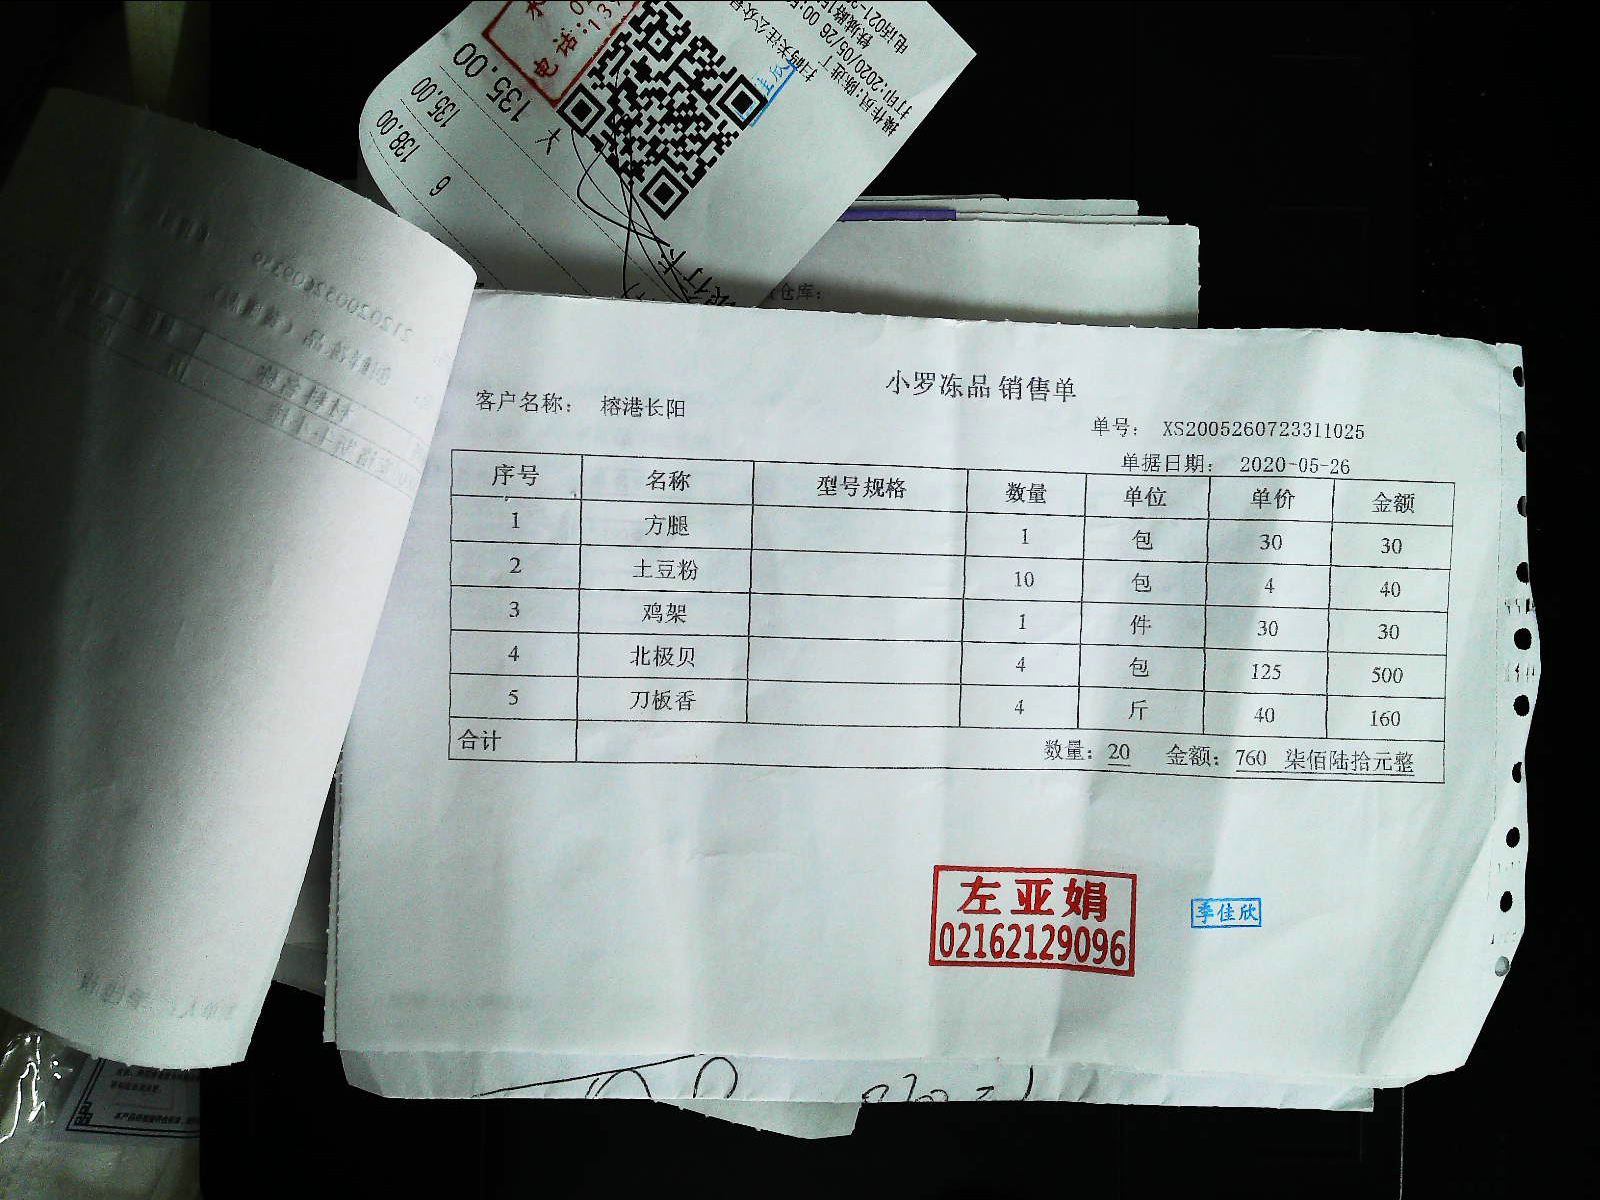 135.00
135.00
138.00
6
大
电话:13
扫码关注公众号
操作员:陈进丁
打印:2020/05/26 00:
电话021-
仓库:
小罗冻品 销售单
客户名称: 榕港长阳
单号: XS2005260723311025
单据日期: 2020-05-26
序号 名称 型号规格 数量 单位 单价 金额
1 方腿 1 包 30 30
2 土豆粉 10 包 4 40
3 鸡架 1 件 30 30
4 北极贝 4 包 125 500
5 刀板香 4 斤 40 160
合计 数量: 20 金额: 760 柒佰陆拾元整
左亚娟
02162129096
季佳欣